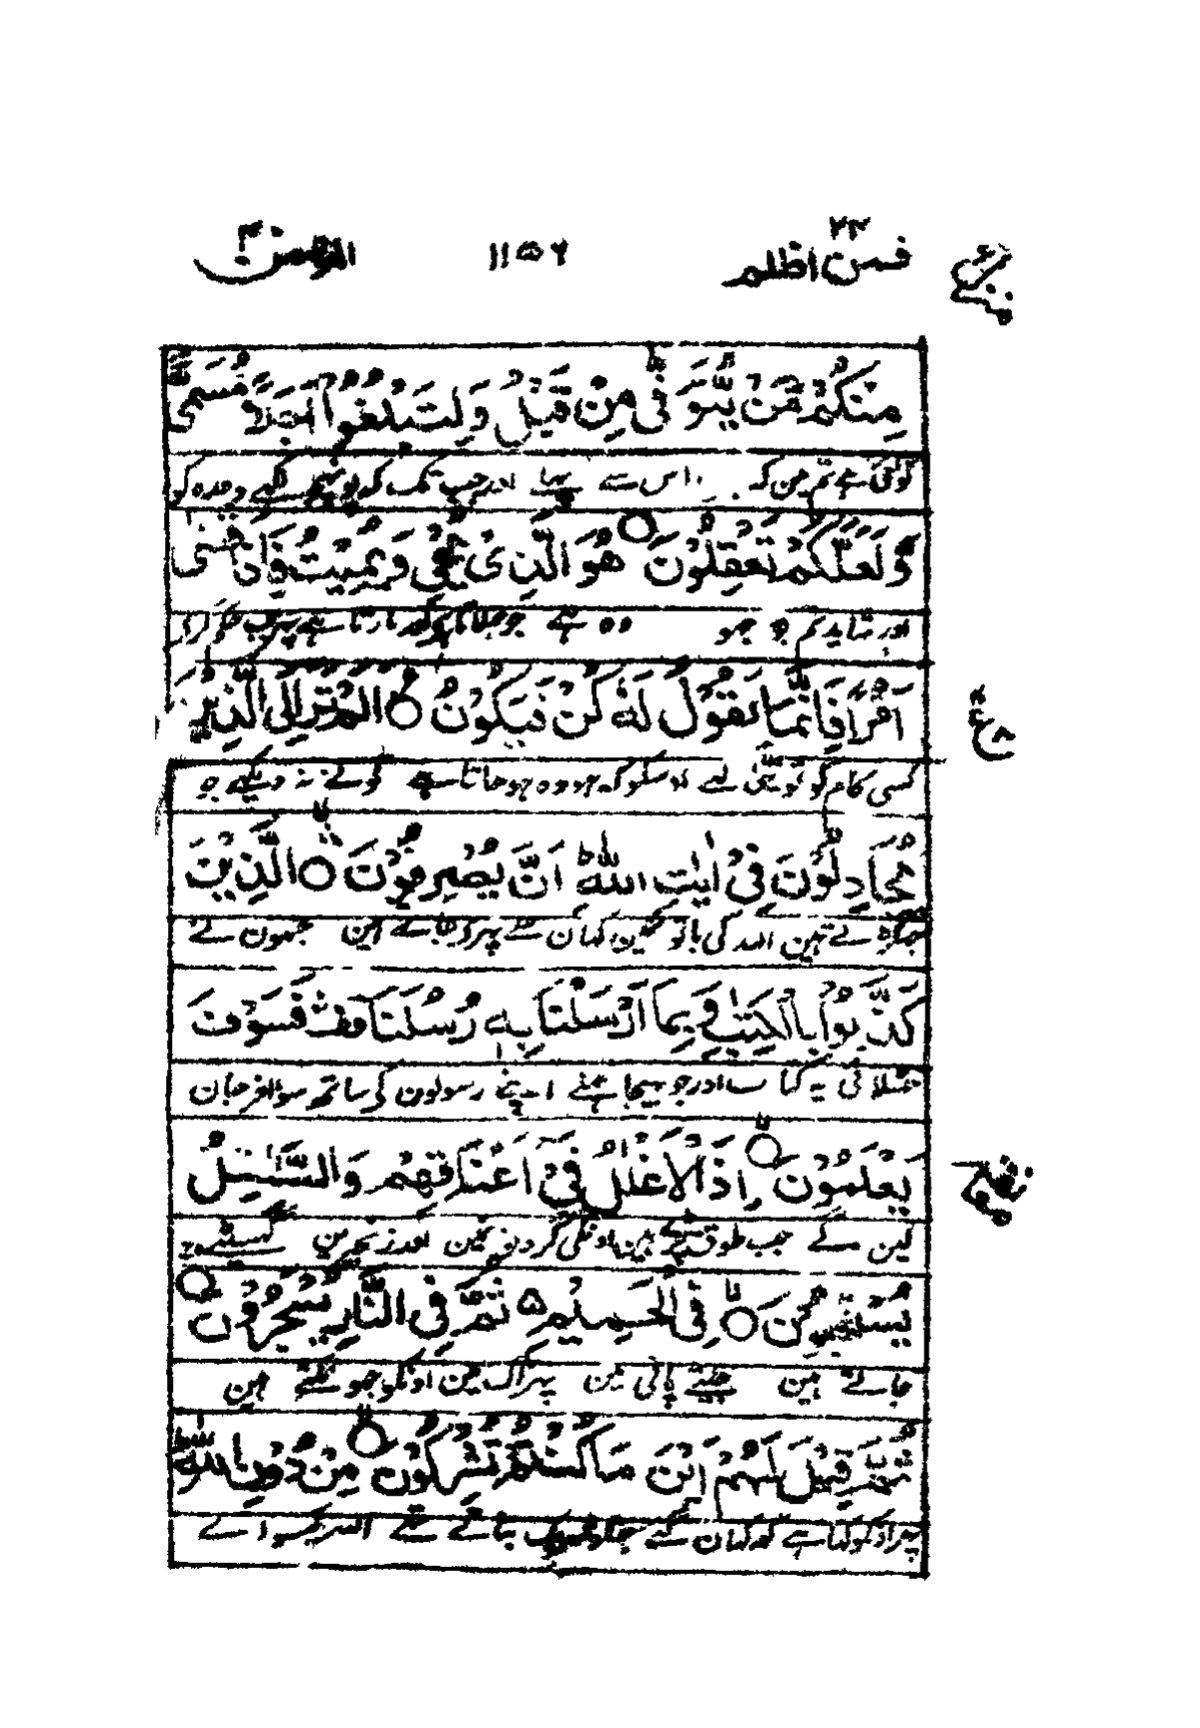 فمن اظلم ۲۴ ۱۱۵۶ المؤمن ۴۰
مِنْكُمْ مَّنْ يُّتَوَفّٰى مِنْ قَبْلُ وَلِتَبْلُغُوْۤا اَجَلًا مُّسَمًّى
کوئی ہے تم مین کہ اس سے پہلے اور جب تک کہ پہنچو لکھے وعدہ کو
وَّلَعَلَّكُمْ تَعْقِلُوْنَ ○ هُوَ الَّذِىْ يُحْىٖ وَيُمِيْتُ فَاِذَا قَضٰۤى
اور شاید تم بوجھو وہ ہے جو جلاتا اور مارتا ہے پھر جب حکم کرے
اَمْرًا فَاِنَّمَا يَقُوْلُ لَهٗ كُنْ فَيَكُوْنُ ○ اَلَمْ تَرَ اِلَى الَّذِيْنَ
کسی کام کو تو یہی کہے اوسکو کہ ہو وہ ہو جاتا ہے تونے نہ دیکھے جو
يُجَادِلُوْنَ فِىْۤ اٰيٰتِ اللّٰهِ ؕ اَنّٰى يُصْرَفُوْنَ ○ الَّذِيْنَ
جھگڑتے ہین اللہ کی باتونمین کہان سے پھیرے جاتے ہین جنہون نے
كَذَّبُوْا بِالْكِتٰبِ وَبِمَاۤ اَرْسَلْنَا بِهٖ رُسُلَنَا قف فَسَوْفَ
جھٹلائی یہ کتاب اور جو بھیجا ہمنے اپنے رسولون کی ساتھ سو آخر جان
يَعْلَمُوْنَ ○ اِذِ الْاَغْلٰلُ فِىْۤ اَعْنَاقِهِمْ وَالسَّلٰسِلُ
لین گے جب طوق پڑے ہین اونکی گردنونمین اور زنجیرین گھسیٹے
يُسْحَبُوْنَ ○ فِى الْحَمِيْمِ ۵ ثُمَّ فِى النَّارِ يُسْجَرُوْنَ ○
جاتے ہین جلتے پانی مین پھر آگ مین اونکو جھونکتے ہین
ثُمَّ قِيْلَ لَهُمْ اَيْنَ مَا كُنْتُمْ تُشْرِكُوْنَ ○ مِنْ دُوْنِ اللّٰهِ
پھر اونکو کہا ہے کہ کہان گئے جنکو شریک بتاتے تھے اللہ کے سوائے